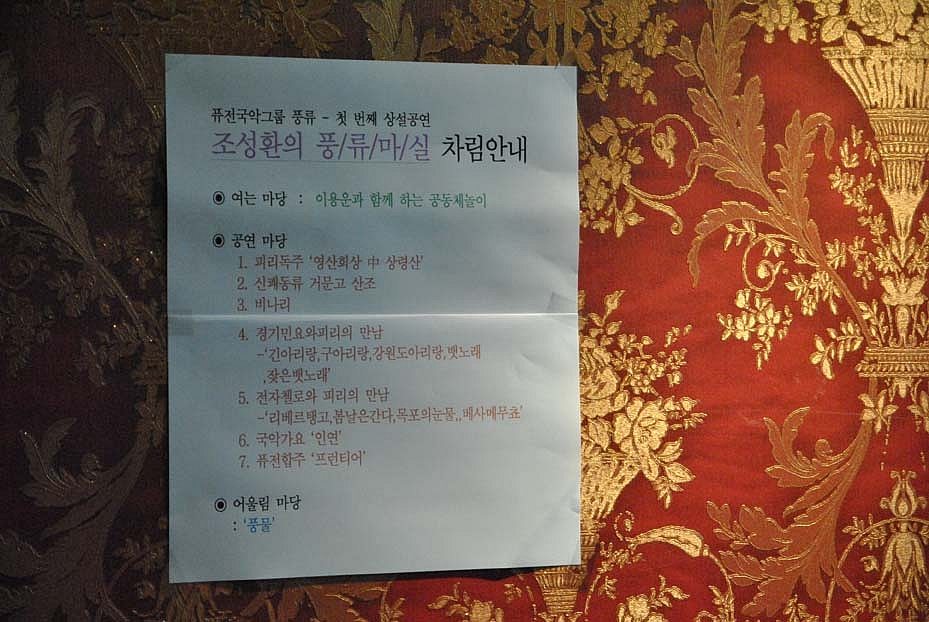 퓨전국악그룹 풍류 - 첫 번째 상설공연
조성환의 풍/류/마/실 차림안내
◉ 여는 마당 : 이용운과 함께 하는 공동체놀이
◉ 공연 마당
1. 피리독주 '영산회상 中 상령산'
2. 신쾌동류 거문고 산조
3. 비나리
4. 경기민요와피리의 만남
-'긴아리랑,구아리랑,강원도아리랑,뱃노래
,잦은뱃노래'
5. 전자첼로와 피리의 만남
-'리베르탱고,봄날은간다,목포의눈물,,베사메무쵸'
6. 국악가요 '인연'
7. 퓨전합주 '프런티어'
◉ 어울림 마당
: '풍물'